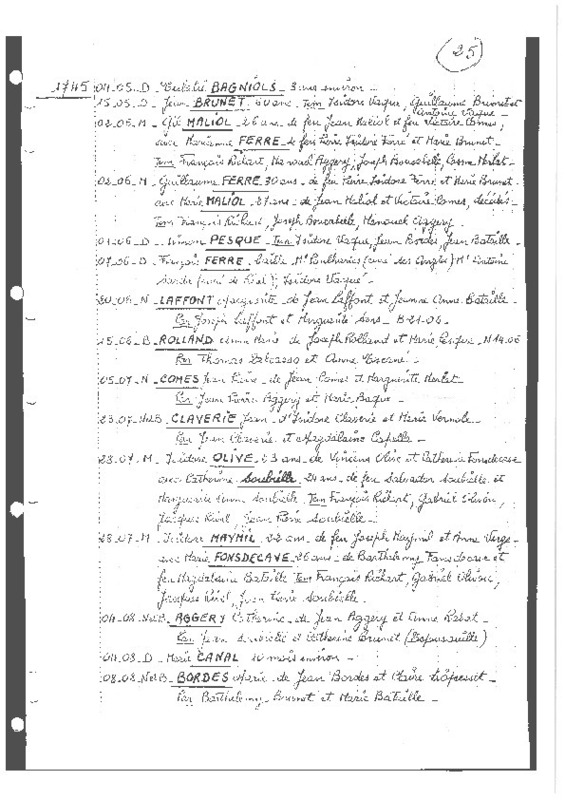 25
1745 04.05_D_ Eulalie BAGNIOLS _ 3 ans environ _
15.05_D_ Jean BRUNET_ 40 ans_ Tem Isidore Vaque, Guillaume Brunet et
Antoine Vaque _
02.06_M_ MALIOL_ 26 ans_ de feu Jean Maliol et feu Victoire Comes,
avec Marianne FERRE_ de feu Pierre Isidore Ferré et Marie Brunet_
Tem François Richart, Aggery, Joseph Bousebelle, Cosme Merlat_
02.06_M_ Guillaume FERRE 30 ans_ de feu Pierre Isidore Ferré et Marie Brunet_
avec Marie MALIOL, 27 ans_ de Jean Maliol et Victoire Comes, décédés_
Tem François Richart, Joseph Aggery_
01.06_D_ PESQUE_ Tem Isidore Vaque, Jean Bordes, Jean Bataille_
07.06_D_ François FERRE_ baille, Mr (curé des Angles) Mr Antoine
(curé de Réal), Isidore Vaqué_
20.06_N_ LAFFONT Marguerite_ de Jean Laffont et Jeanne Anne Bataille_
Par Joseph Laffont et Marguerite Sans_ B_21.06_
15.06_B_ ROLLAND Anne Marie_ de Joseph Rolland et Marie _ N 14.06
Par Thomas et Anne
05.07_N_ COMES Jean Pierre_ de Jean Comes et Marguerite Merlat_
Par Jean Pierre Aggery et Marie Baque_
23.07_NdB_ CLAVERIE Jean_ d'Isidore Claverie et Marie Vernole_
Par Jean Claverie et Magdalaine Capelle_
28.07_M_ Isidore OLIVE_ 23 ans_ de Vincens Olive et Catherine Fonsdecase
avec Catherine Soubielle_ 24 ans_ de feu Salvador Soubielle et
Marguerite Anne Soubielle_ Tem François Richart, Gabriel Olivier,
Jacques Rival, Jean Pierre Soubielle_
28.07_M_ Isidore MAYMIL_ 22 ans_ de feu Joseph Maymil et Anne Verge_
avec Marie FONSDECAVE_ 26 ans_ de Barthelemy Fonsdecave et
feu Magdelaine Bataille Tem François Richart, Gabriel Olivier,
Jacques Rival, Jean Pierre Soubielle_
04.08_NdB_ AGGERY Catherine_ de Jean Aggery et Anne Rabat_
Par Jean Soubielle et Catherine Brunet
04.08_D_ Marie CANAL 10 mois environ_
08.08_NdB_ BORDES Marie_ de Jean Bordes et Claire
Par Barthelemy Brunet et Marie Bataille_